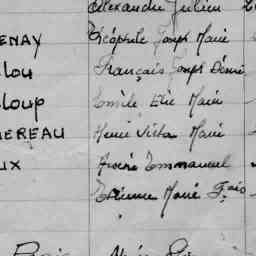 Alexandre Julien
ENAY Théophile Joseph Marie
lou François Joseph Désiré
loup Emile Elie Marie
EREAU Henri Victor Marie
UX André Emmanuel
Etienne Marie Fçois